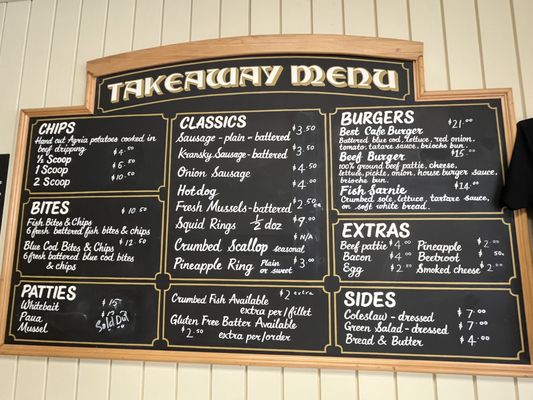 TAKEAWAY MENU
CHIPS
Hand cut Agria potatoes cooked in
beef dripping.
½ Scoop $4.00
1 Scoop $6.50
2 Scoop $10.50
BITES
$10.50
Fish Bites & Chips
6 fresh battered fish bites & chips
Blue Cod Bites & Chips $12.50
6 fresh battered blue cod bites
& chips
PATTIES
Whitebait $15
Paua
Mussel Sold Out
CLASSICS
Sausage - plain - battered $3.50
Kransky Sausage - battered $3.50
Onion Sausage $4.50
Hotdog $4.00
Fresh Mussels - battered $2.50
Squid Rings ½ doz $9.00
Crumbed Scallop seasonal $N/A
Pineapple Ring Plain or sweet $3.00
Crumbed Fish Available $2 extra
extra per/fillet
Gluten Free Batter Available
$2.50 extra per/order
BURGERS
$21.00
Best Cafe Burger
Battered blue cod, lettuce, red onion,
tomato, tatare sauce, brioche bun.
Beef Burger $15.00
100% ground beef pattie, cheese,
lettuce, pickle, onion, house burger sauce,
brioche bun.
Fish Sarnie $14.00
Crumbed sole, lettuce, tartare sauce,
on soft white bread.
EXTRAS
Beef pattie $4.00 Pineapple $2.00
Bacon $4.00 Beetroot $.50
Egg $2.00 Smoked cheese $2.00
SIDES
Coleslaw - dressed $7.00
Green Salad - dressed $7.00
Bread & Butter $4.00